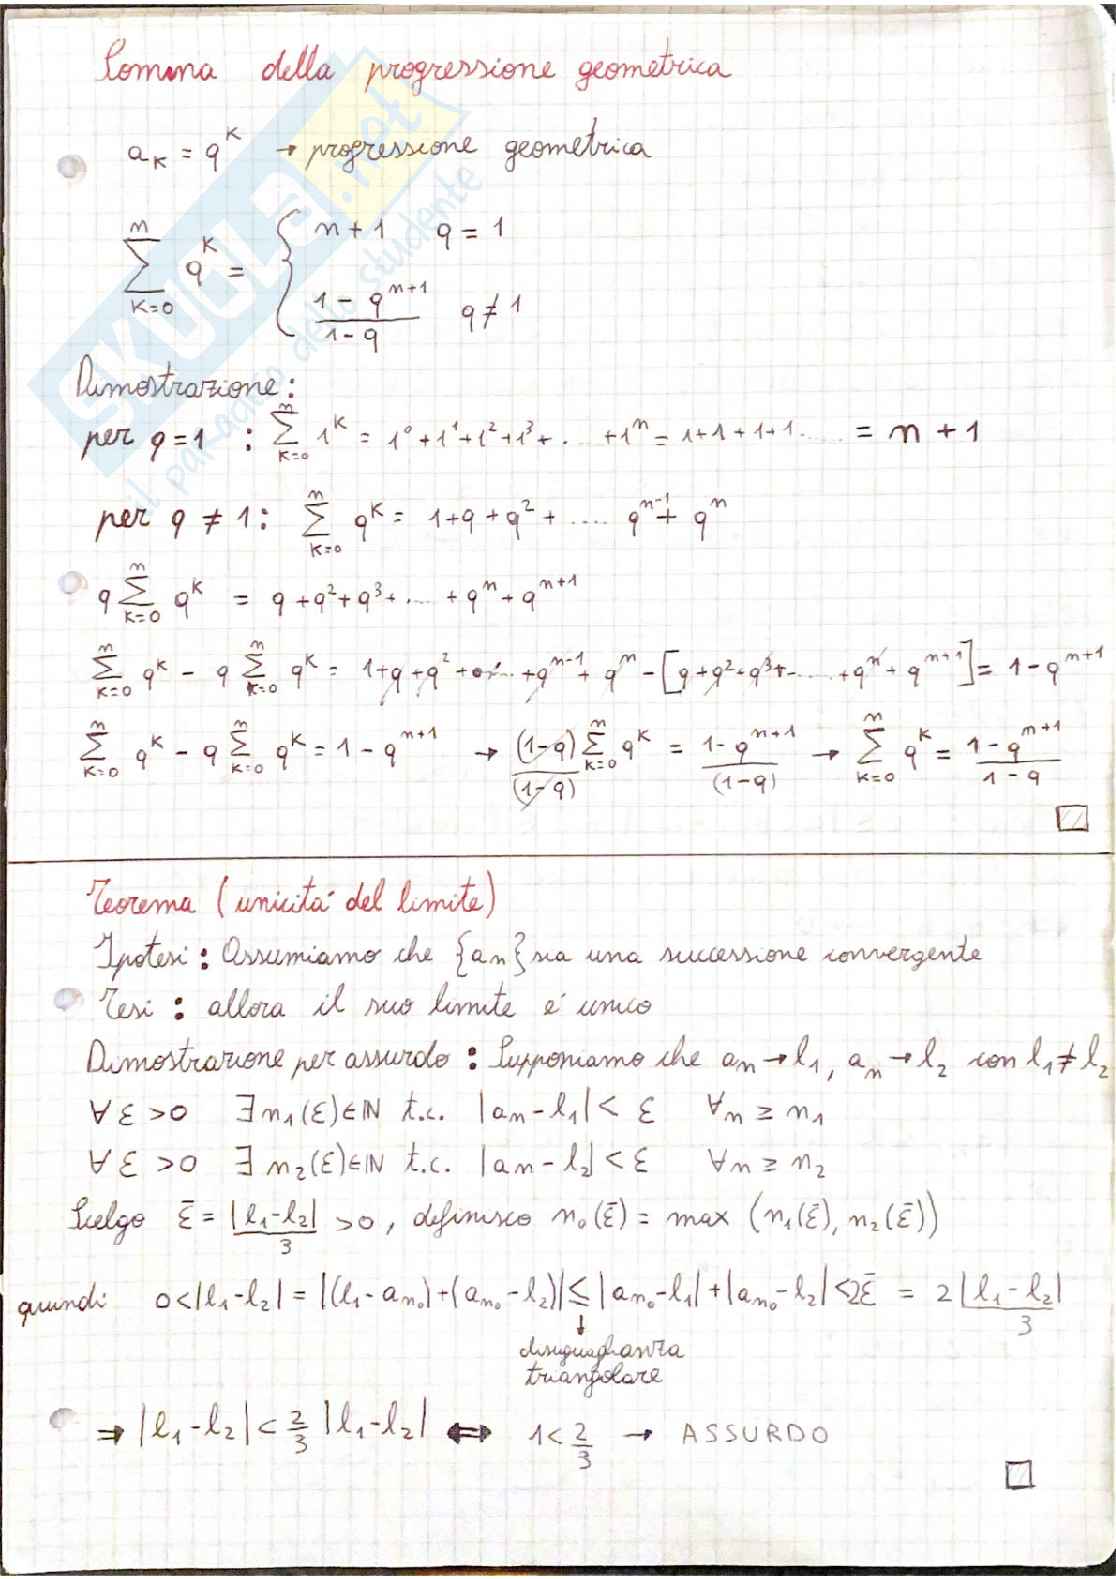 Somma della progressione geometrica
a_k = q^k → progressione geometrica
∑_{k=0}^{n} q^k = { n+1   q = 1
{ (1 - q^{n+1})/(1 - q)   q ≠ 1
Dimostrazione:
per q=1 : ∑_{k=0}^{n} 1^k = 1^0 + 1^1 + 1^2 + 1^3 + ... + 1^n = 1+1+1+1..... = n + 1
per q ≠ 1: ∑_{k=0}^{n} q^k = 1+q+q^2+ .... q^{n-1} + q^n
q ∑_{k=0}^{n} q^k = q+q^2+q^3+ .... + q^n + q^{n+1}
∑_{k=0}^{n} q^k - q ∑_{k=0}^{n} q^k = 1+q+q^2+.....+q^{n-1}+q^n - [q+q^2+q^3+......+q^n+q^{n+1}] = 1 - q^{n+1}
∑_{k=0}^{n} q^k - q ∑_{k=0}^{n} q^k = 1 - q^{n+1} → (1-q)/(1-q) ∑_{k=0}^{n} q^k = (1-q^{n+1})/(1-q) → ∑_{k=0}^{n} q^k = (1-q^{n+1})/(1-q)
Teorema (unicità del limite)
Ipotesi: Assumiamo che {a_n} sia una successione convergente
Tesi: allora il suo limite è unico
Dimostrazione per assurdo: Supponiamo che a_n → l_1, a_n → l_2 con l_1 ≠ l_2
∀ ε > 0   ∃ n_1(ε) ∈ ℕ t.c. |a_n - l_1| < ε   ∀n ≥ n_1
∀ ε > 0   ∃ n_2(ε) ∈ ℕ t.c. |a_n - l_2| < ε   ∀n ≥ n_2
Scelgo ε̄ = |l_1-l_2|/3 > 0, definisco n_0(ε̄) = max (n_1(ε̄), n_2(ε̄))
quindi 0<|l_1-l_2| = |(l_1-a_{n_0})+(a_{n_0}-l_2)| ≤ |a_{n_0}-l_1|+|a_{n_0}-l_2| < 2ε̄ = 2 |l_1-l_2|/3
↓
disuguaglianza
triangolare
⇒ |l_1-l_2| < 2/3 |l_1-l_2| ⇔ 1 < 2/3 → ASSURDO
SKUOLA.net
il paradiso dello studente